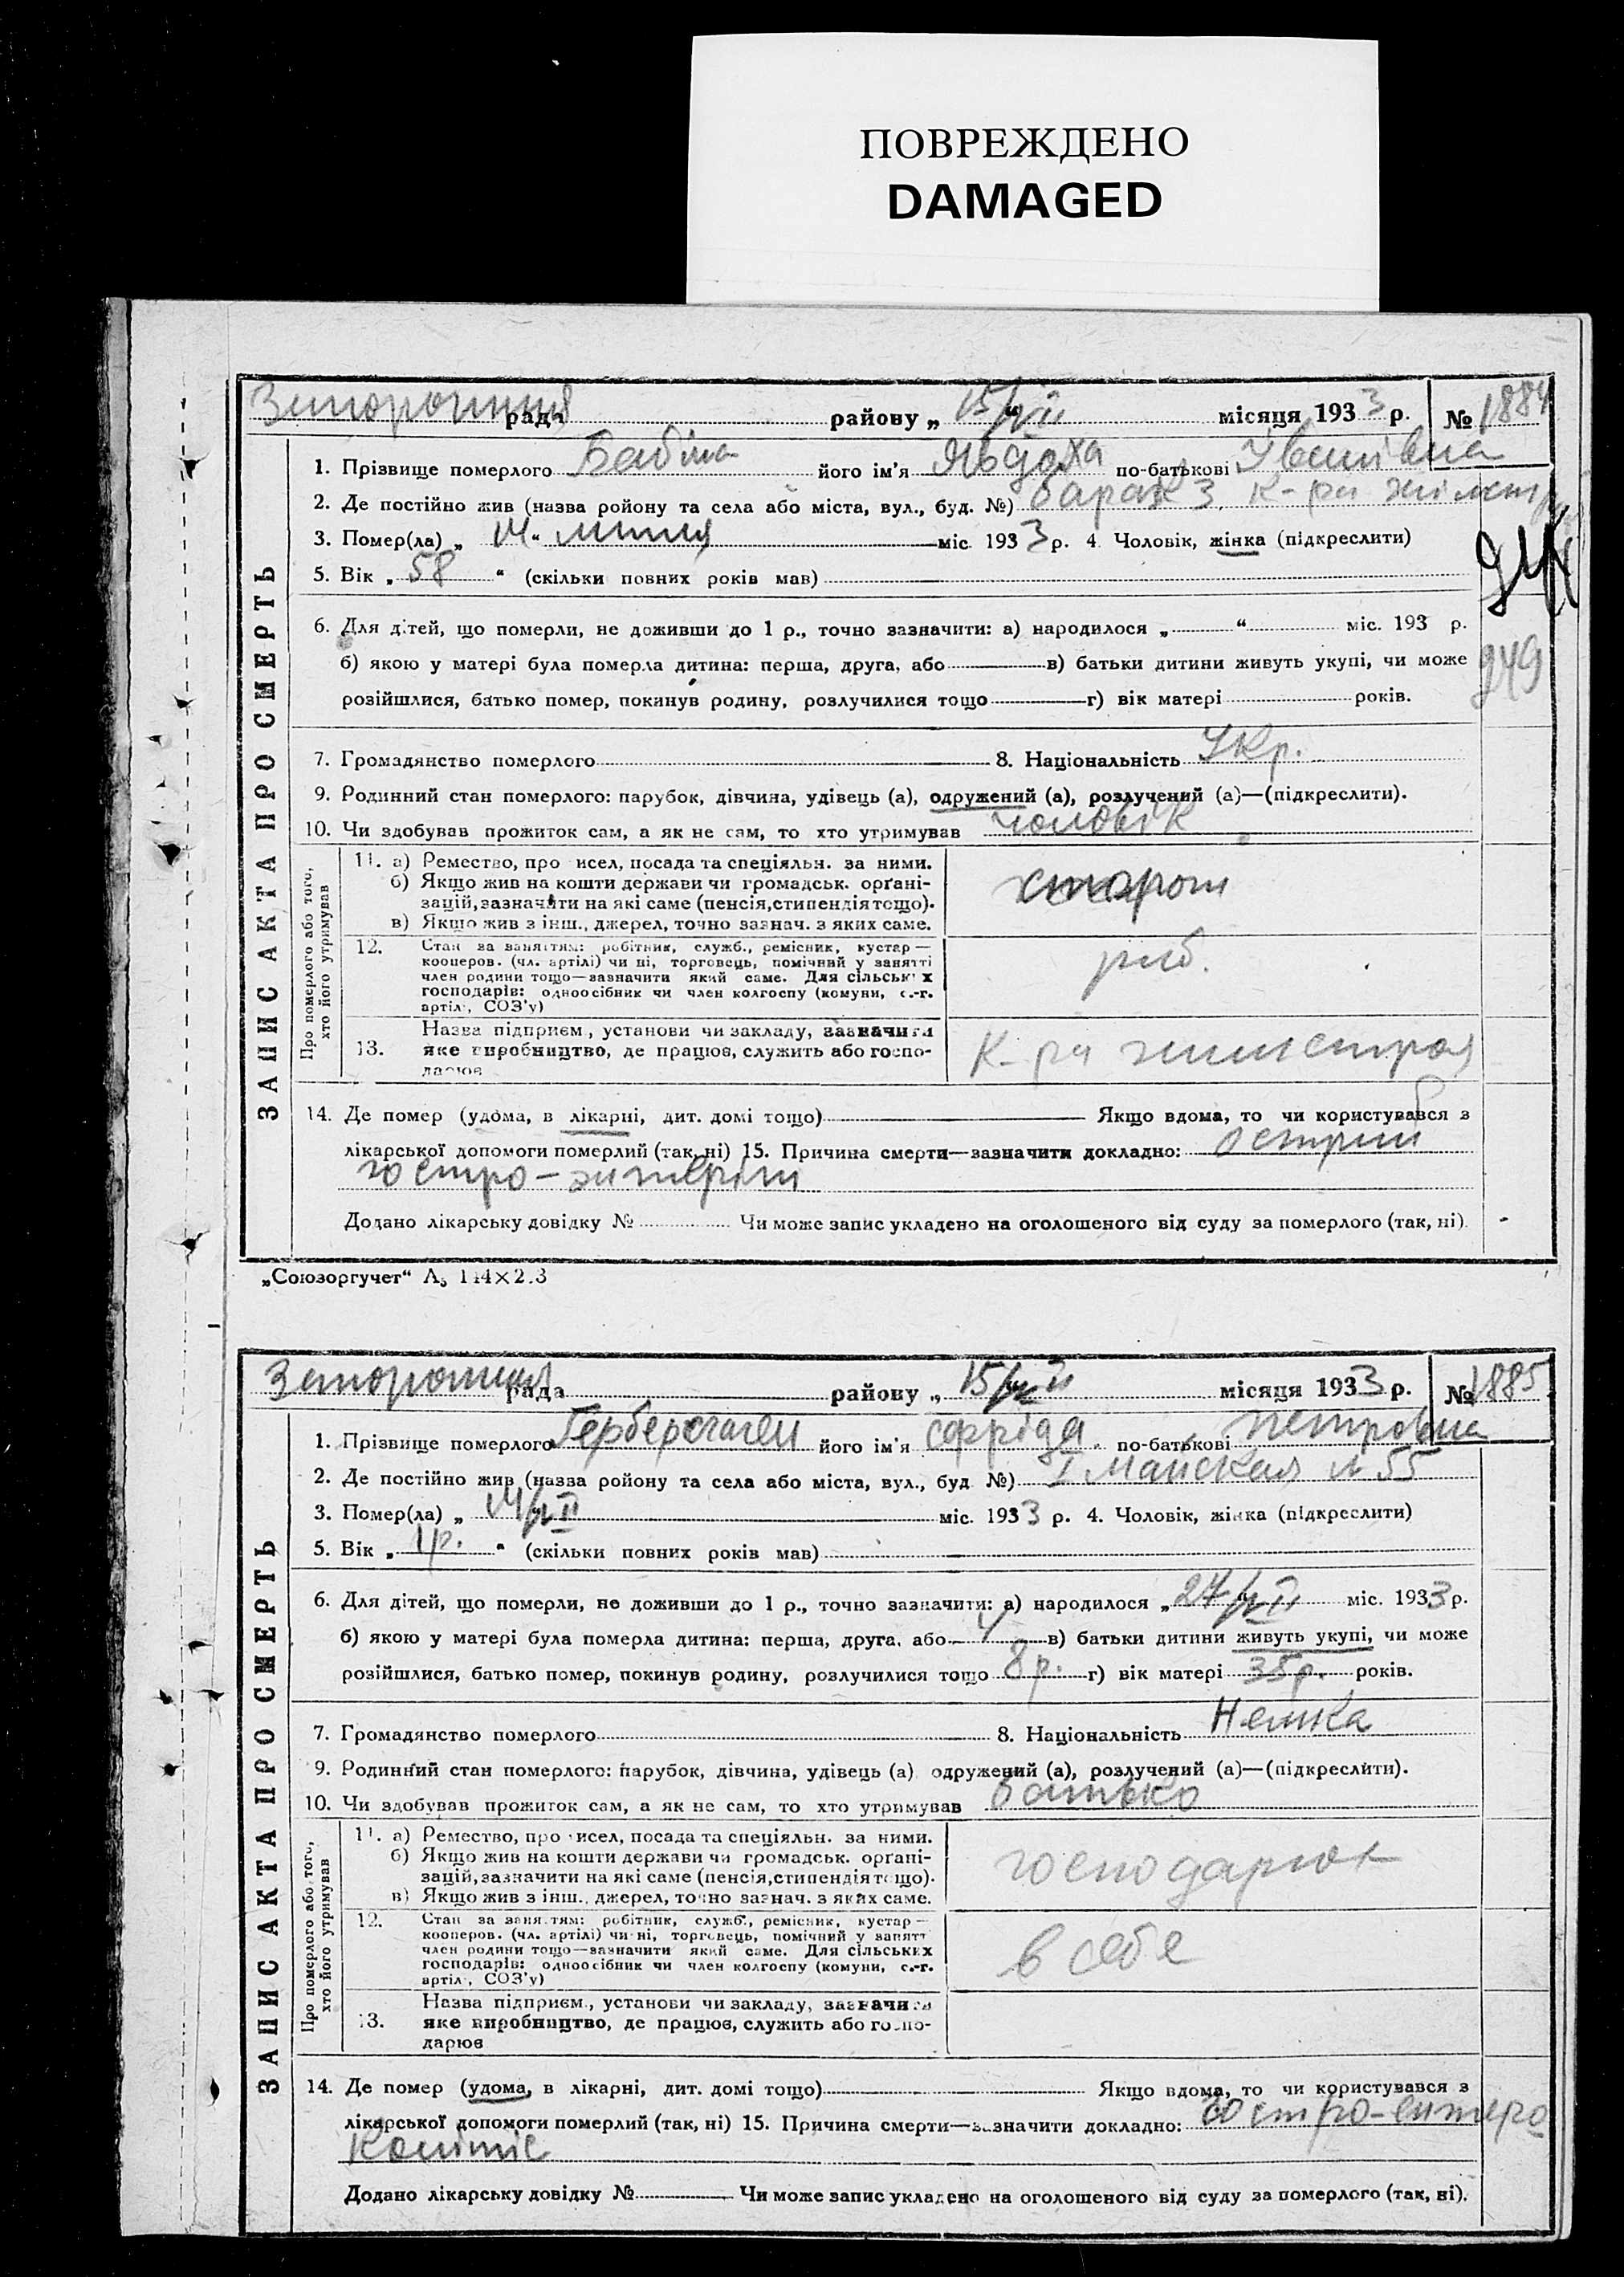 ПОВРЕЖДЕНО
DAMAGED
рада району „ 15/VII місяця 1933 р. № 1884
1. Прізвище померлого його ім'я Явдоха по-батькові Іванівна
2. Де постійно жив (назва ройону та села або міста, вул., буд. №) барак 3, к-ра
3. Помер(ла) „ 14 “ липня міс. 1933 р. 4. Чоловік, жінка (підкреслити)
5. Вік „ 58 “ (скільки повних років мав)
6. Для дітей, що померли, не доживши до 1 р., точно зазначити: а) народилося „ “ міс. 193 р.
б) якою у матері була померла дитина: перша, друга, або в) батьки дитини живуть укупі, чи може
949
розійшлися, батько помер, покинув родину, розлучилися тощо г) вік матері років.
7. Громадянство померлого 8. Національність Укр.
9. Родинний стан померлого: парубок, дівчина, удівець (а), одружений (а), розлучений (а)—(підкреслити).
10. Чи здобував прожиток сам, а як не сам, то хто утримував чоловік
ЗАПИС АКТА ПРО СМЕРТЬ
Про померлого або того, хто його утримував
11. а) Ремество, про исел, посада та спеціяльн. за ними.
б) Якщо жив на кошти держави чи громадськ. орґані-
зацій, зазначити на які саме (пенсія, стипендія тощо).
в) Якщо жив з інш., джерел, точно зазнач. з яких саме.
сторож
12. Стан за заняттям: робітник, служб., ремісник, кустар—
кооперов. (чл. артілі) чи ні, торговець, помічний у занятті
член родини тощо—зазначити який саме. Для сільських
господарів: одноосібник чи член колгоспу (комуни, с.-г.
артілі, СОЗ'у)
роб.
13. Назва підприєм., установи чи закладу, зазначити
яке виробництво, де працює, служить або госпо-
дарює
К-ра
14. Де помер (удома, в лікарні, дит. домі тощо) Якщо вдома, то чи користувався з
лікарської допомоги померлий (так, ні) 15. Причина смерти—зазначити докладно:
Додано лікарську довідку № Чи може запис укладено на оголошеного від суду за померлого (так, ні).
„Союзоргучет“
рада району „ 15/VII місяця 1933 р. № 1885
1. Прізвище померлого його ім'я по-батькові Петровна
2. Де постійно жив (назва ройону та села або міста, вул., буд. №) I Майская № 55
3. Помер(ла) „ 14/VII міс. 1933 р. 4. Чоловік, жінка (підкреслити)
5. Вік „ 1р. “ (скільки повних років мав)
6. Для дітей, що померли, не доживши до 1 р., точно зазначити: а) народилося „ міс. 1933 р.
б) якою у матері була померла дитина: перша, друга, або 4 в) батьки дитини живуть укупі, чи може
розійшлися, батько помер, покинув родину, розлучилися тощо 8 р. г) вік матері 35 р. років.
7. Громадянство померлого 8. Національність Немка
9. Родинний стан померлого: парубок, дівчина, удівець (а) одружений (а), розлучений (а)—(підкреслити).
10. Чи здобував прожиток сам, а як не сам, то хто утримував батько
ЗАПИС АКТА ПРО СМЕРТЬ
Про померлого або того, хто його утримував
11. а) Ремество, про исел, посада та спеціяльн. за ними.
б) Якщо жив на кошти держави чи громадськ. орґані-
зацій, зазначити на які саме (пенсія, стипендія тощо).
в) Якщо жив з інш., джерел, точно зазнач. з яких саме.
12. Стан за заняттям: робітник, служб., ремісник, кустар—
кооперов. (чл. артілі) чи ні, торговець, помічний у занятті
член родини тощо—зазначити який саме. Для сільських
господарів: одноосібник чи член колгоспу (комуни, с.-г.
артілі, СОЗ'у)
в себе
13. Назва підприєм., установи чи закладу, зазначити
яке виробництво, де працює, служить або госпо-
дарює
14. Де помер (удома, в лікарні, дит. домі тощо) Якщо вдома, то чи користувався з
лікарської допомоги померлий (так, ні) 15. Причина смерти—зазначити докладно: гостро-ентеро
коліtіс
Додано лікарську довідку № Чи може запис укладено на оголошеного від суду за померлого (так, ні).